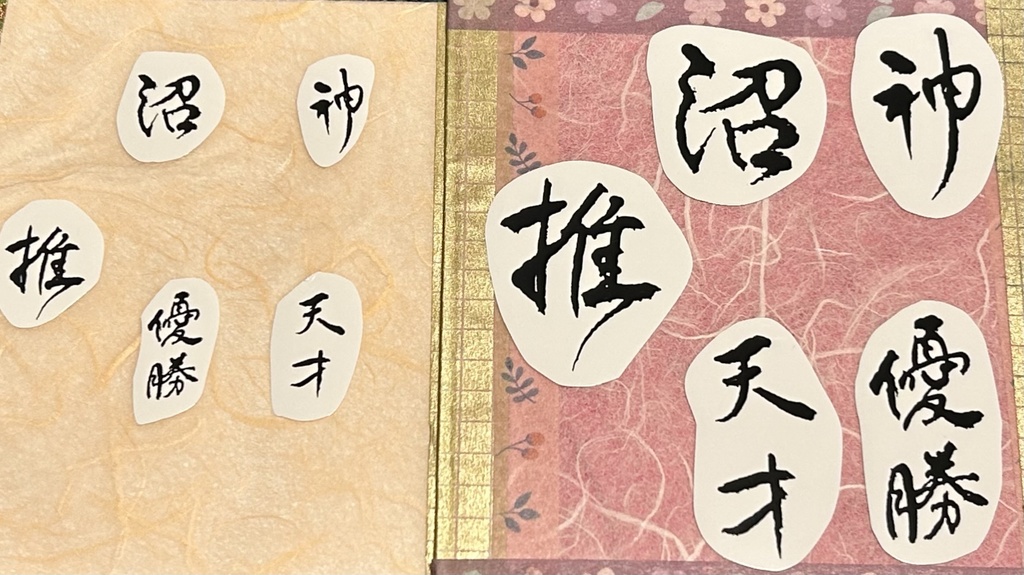 沼
神
推
優勝
天才
沼
神
推
天才
優勝